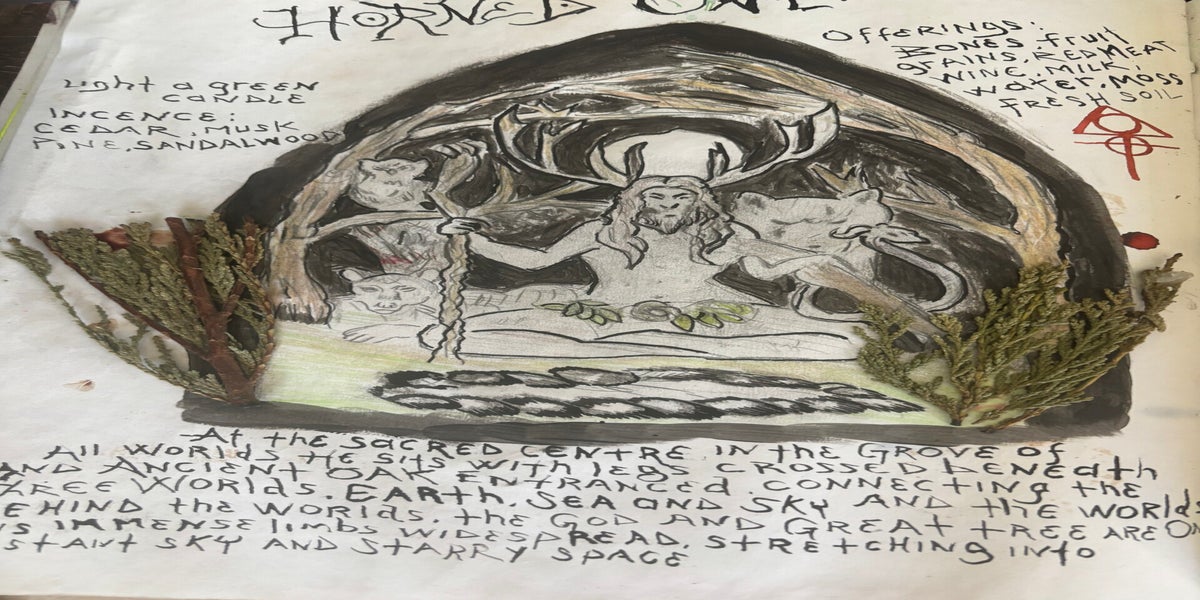 HORNED ONE.
Light a green
CANDLE
INCENCE:
CEDAR, MUSK
PINE, SANDALWOOD
OFFERINGS:
BONES, fruit
grains, RED MEAT
WINE, MILK,
WATER, MOSS
FRESH SOIL
At the SACRED CENTRE IN the GROVE of
All WORLDS, HE SITS WITH legS CROSSED bENEATH
AND ANCIENT OAK ENTRANCED. CONNECTING the
REE WORLDS. EARTH, SEA AND SKY AND the WORLDS
EHIND the WORLDS. the GOD AND GREAT tREE ARE ON
S IMMENSE limbs WIDESPREAD, STRETCHING INTO
STANT SKY AND STARRY SPACE